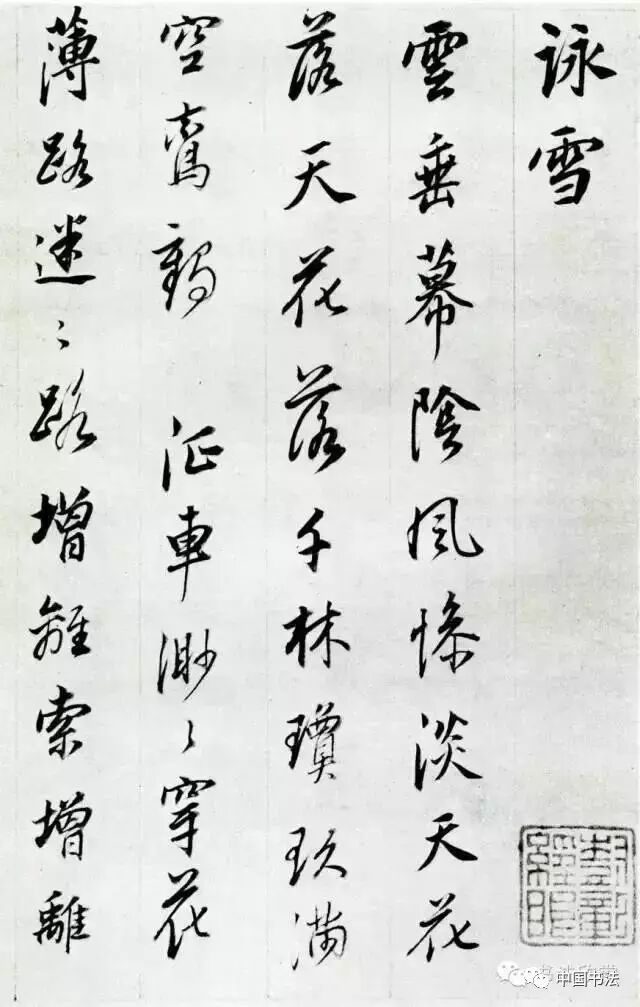 詠雪
雲垂幕陰風慘淡天花
落天花落千林瓊玖滿
空鸞鶴 征車渺〻穿花
薄路迷〻路增離索增離
中国书法